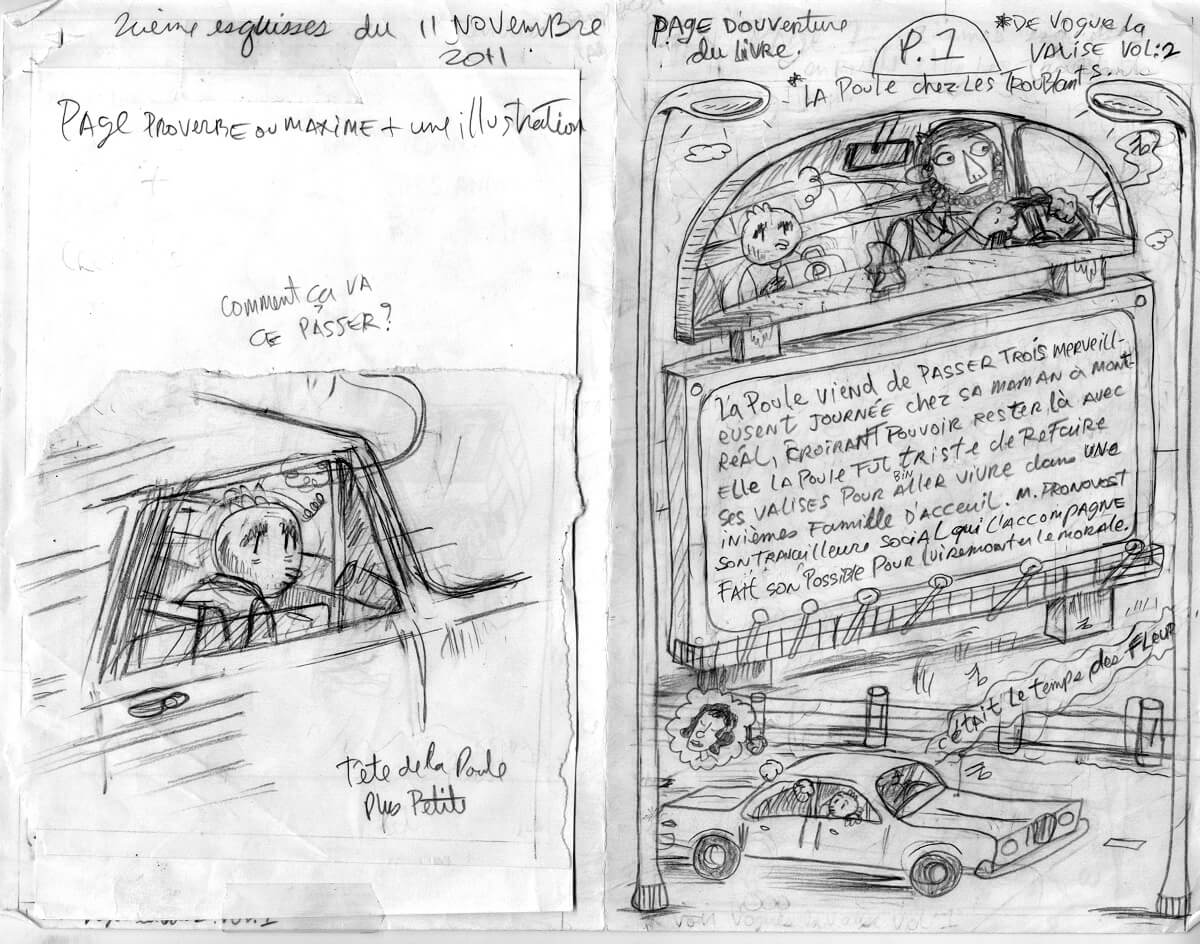 2ième esquisses du 11 Novembre
2011
PAGE PROVERBE OU MAXIME + une illustration
comment ça VA
CE PÂSSER?
tête de la Poule
Plus Petite
PAGE D'OUVERTURE
du LIVRE.
P.1
*DE VOGUE la
VALISE VOL:2
*LA Poule chez Les TROUBLANTS.
LA POULE VIEND de PASSER TROIS MERVEILL-
EUSENT JOURNÉE chez SA MAMAN à MONT
RÉAL, CROIRANT POUVOIR RESTER LÀ AVEC
ELLE LA POULE FUT triste de REFAIRE
SES VALISES POUR ALLER VIVRE dans UNE
BIN
INIÈMES FAMILLE D'ACCEUIL. M. PRONOVOST
SON TRAVAILLEURE SOCIAL QUI L'ACCOMPAGNE
FAIT SON POSSIBLE POUR LUI REMONTER le MORALE.
c'était Le temps des FLEUR